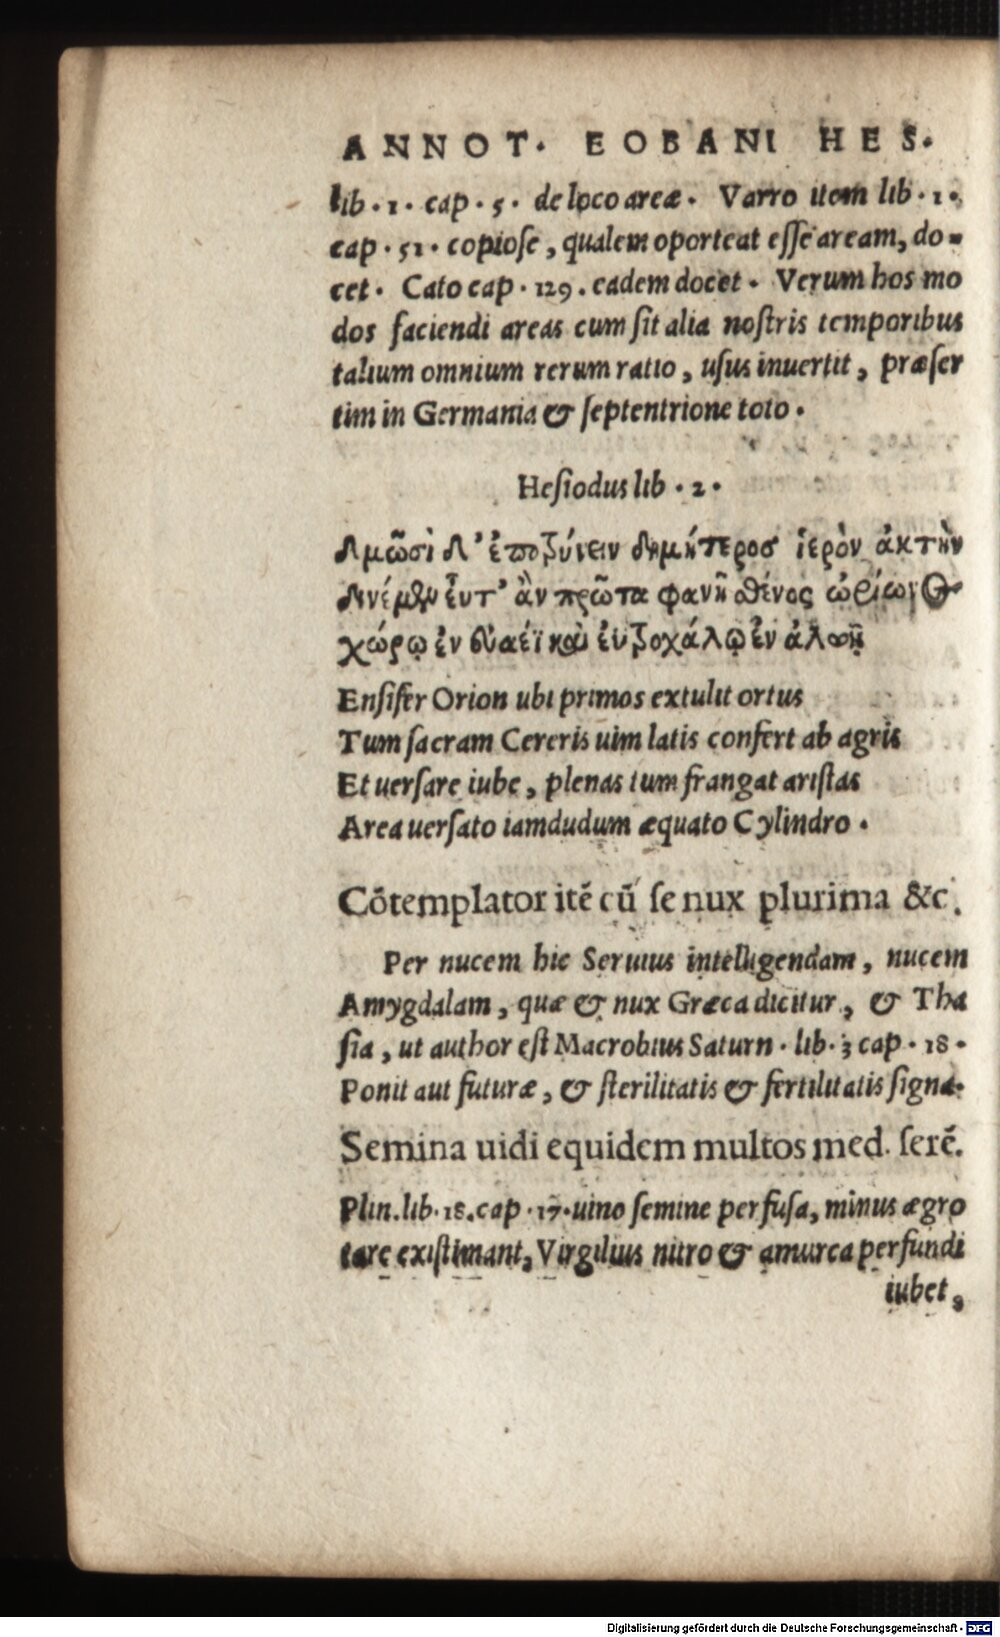 ANNOT. EOBANI HES.
lib. 1. cap. 5. de loco areæ. Varro item lib. 1.
cap. 51. copiose, qualem oporteat esse aream, do-
cet. Cato cap. 129. eadem docet. Verum hos mo
dos faciendi areas cum sit alia nostris temporibus
talium omnium rerum ratio, usus inuertit, præser
tim in Germania & septentrione toto.
Hesiodus lib. 2.
Δμωσὶ δ' ἐποτρύνειν δημήτερος ἱερὸν ἀκτὴν
Δινέμεν εὖτ' ἂν πρῶτα φανῇ σθένος ὠρίωνος
χώρῳ ἐν εὐαέϊ καὶ ἐϋτροχάλῳ ἐν ἀλωῇ
Ensifer Orion ubi primos extulit ortus
Tum sacram Cereris uim latis confert ab agris
Et uersare iube, plenas tum frangat aristas
Area uersato iamdudum æquato Cylindro.
Cõtemplator itẽ cũ se nux plurima &c.
Per nucem hic Seruius intelligendam, nucem
Amygdalam, quæ & nux Græca dicitur, & Tha
sia, ut author est Macrobius Saturn. lib. 3 cap. 18.
Ponit aut futuræ, & sterilitatis & fertilitatis signa.
Semina uidi equidem multos med. serẽ.
Plin. lib. 18. cap. 17. uino semine perfusa, minus ægro
tare existimant, Virgilius nitro & amurca perfundi
iubet,
Digitalisierung gefördert durch die Deutsche Forschungsgemeinschaft - DFG